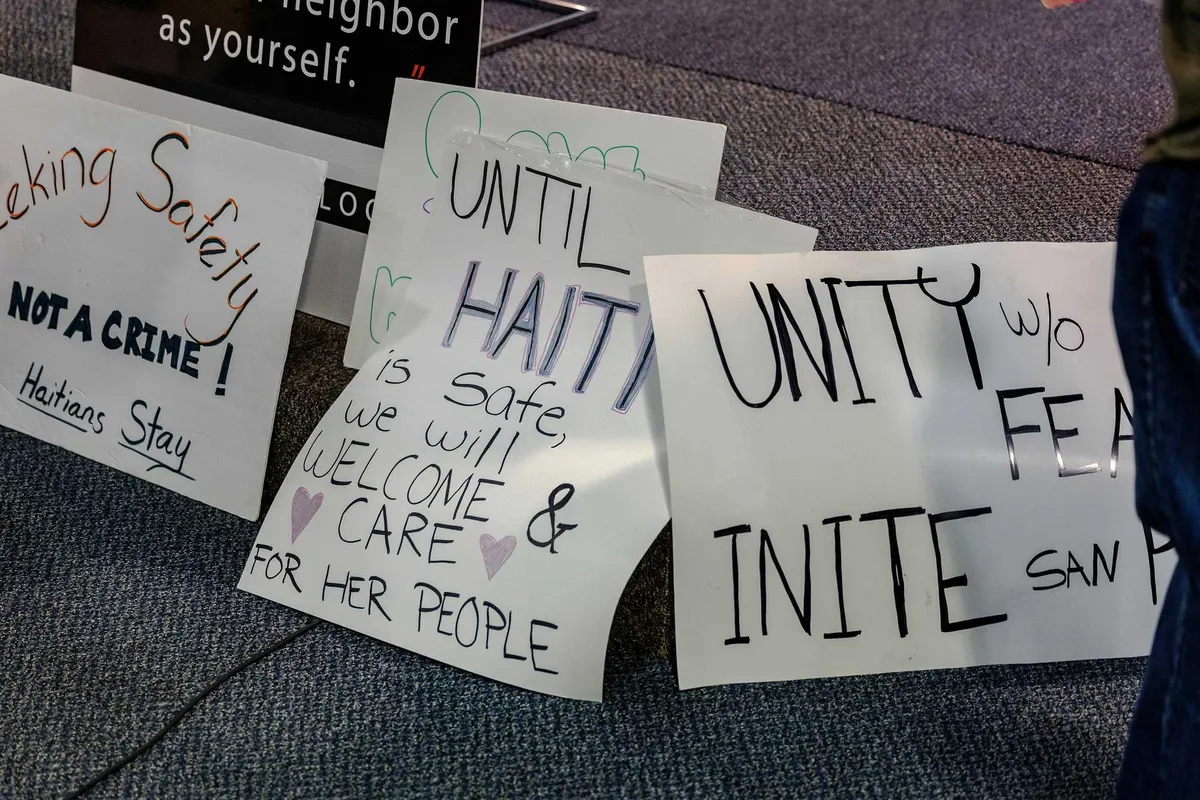 neighbor
as yourself."
eking Safety
NOT A CRIME!
Haitians Stay
LOC
UNTIL
HAITI
is safe,
we will
WELCOME &
CARE
FOR HER PEOPLE
UNITY w/o
FEA
INITE SAN P